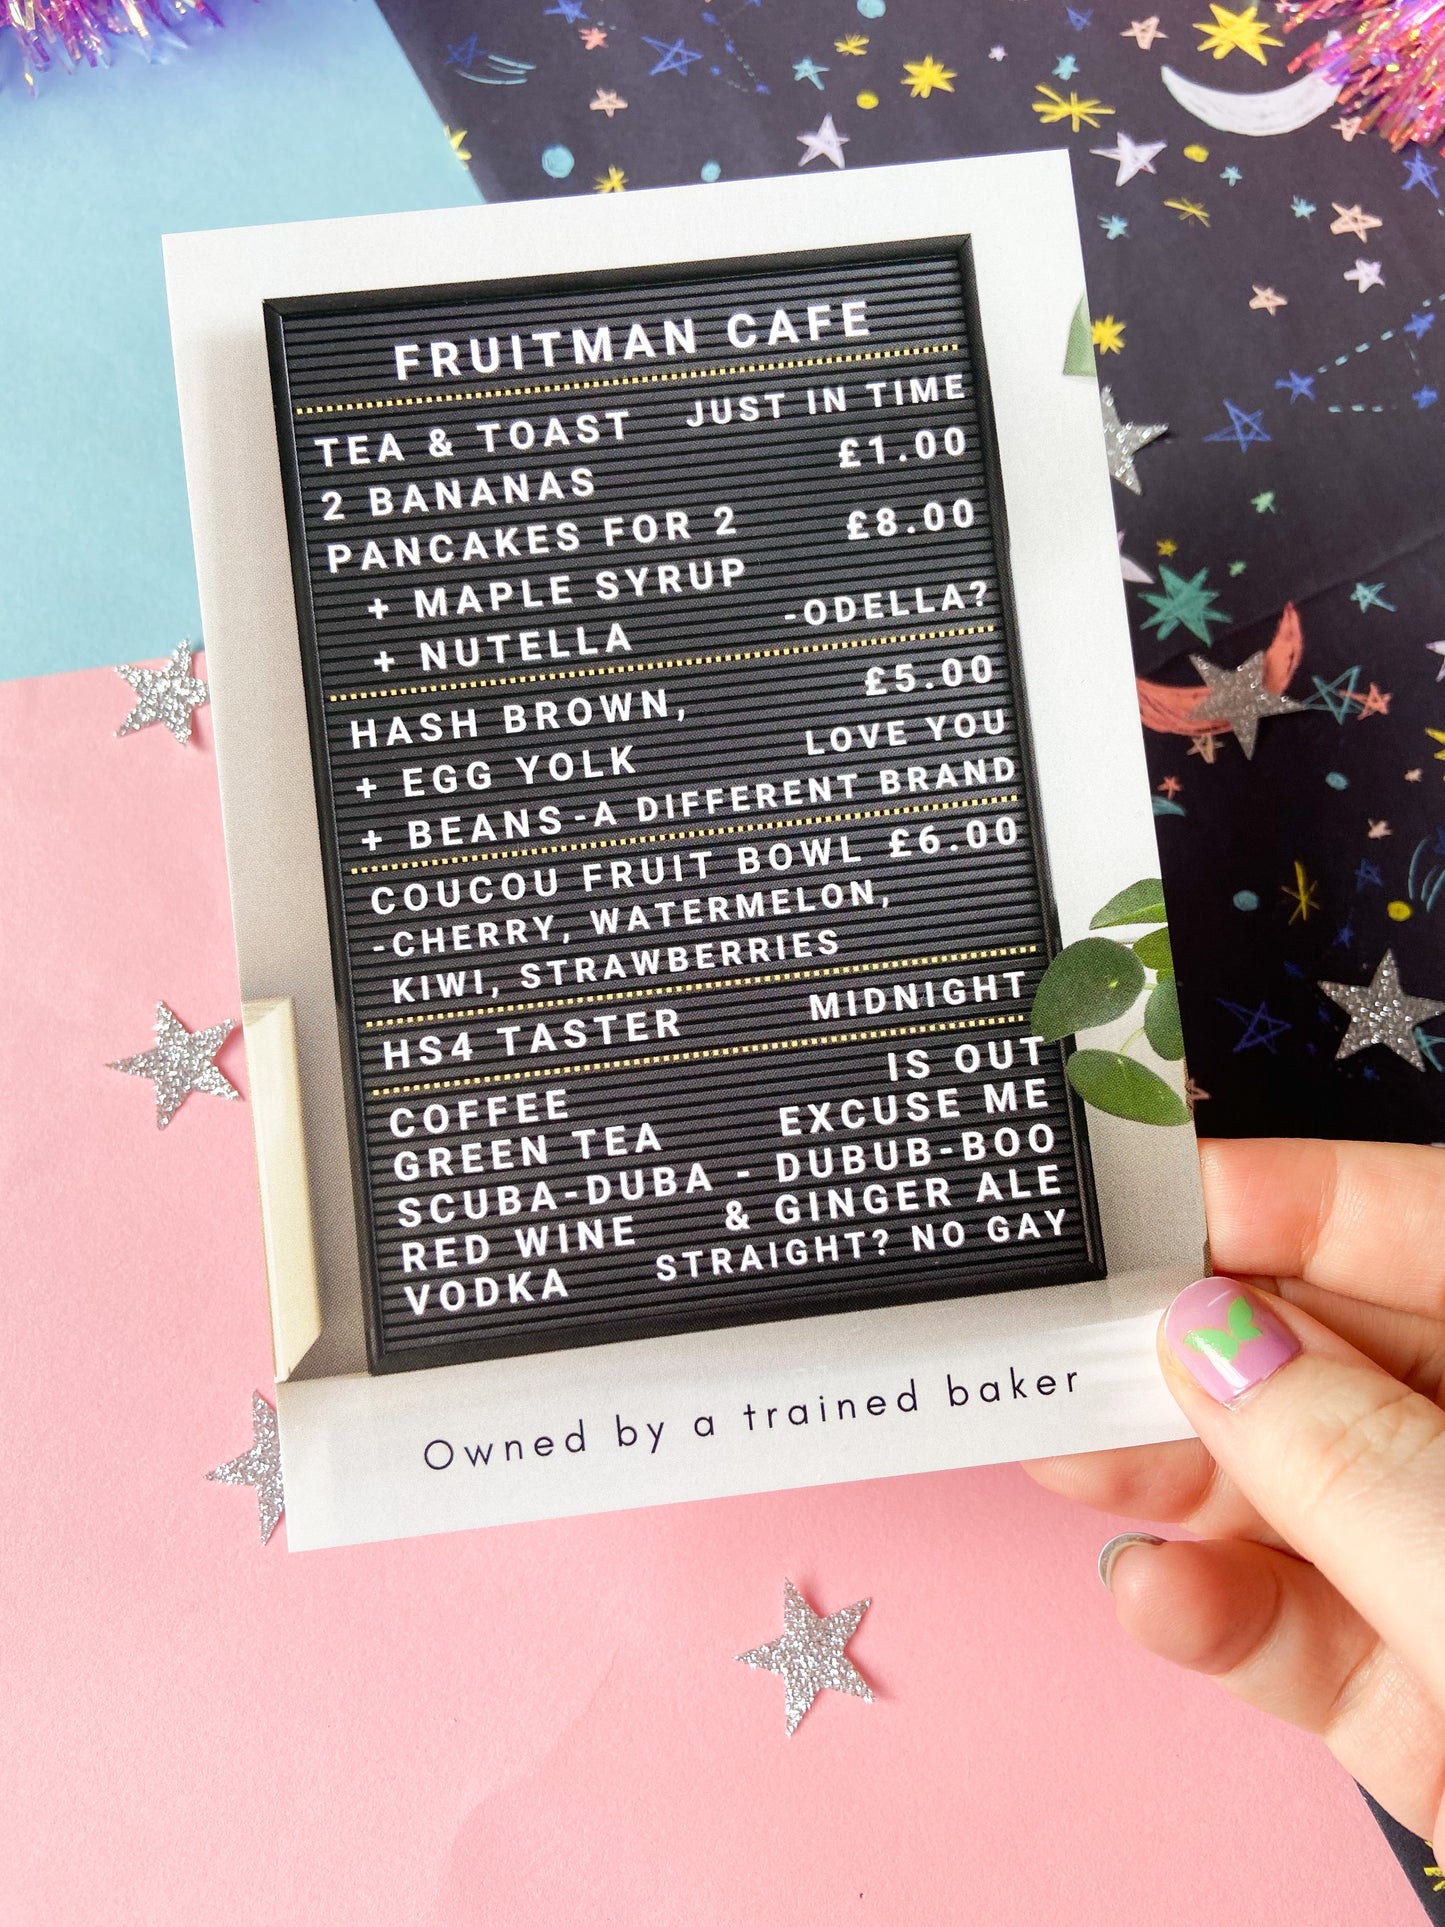 FRUITMAN CAFE
TEA & TOAST JUST IN TIME
2 BANANAS £1.00
PANCAKES FOR 2 £8.00
+ MAPLE SYRUP
+ NUTELLA -ODELLA?
HASH BROWN, £5.00
+ EGG YOLK LOVE YOU
+ BEANS -A DIFFERENT BRAND
COUCOU FRUIT BOWL £6.00
-CHERRY, WATERMELON,
KIWI, STRAWBERRIES
HS4 TASTER MIDNIGHT
COFFEE IS OUT
GREEN TEA EXCUSE ME
SCUBA-DUBA - DUBUB-BOO
RED WINE & GINGER ALE
VODKA STRAIGHT? NO GAY
Owned by a trained baker